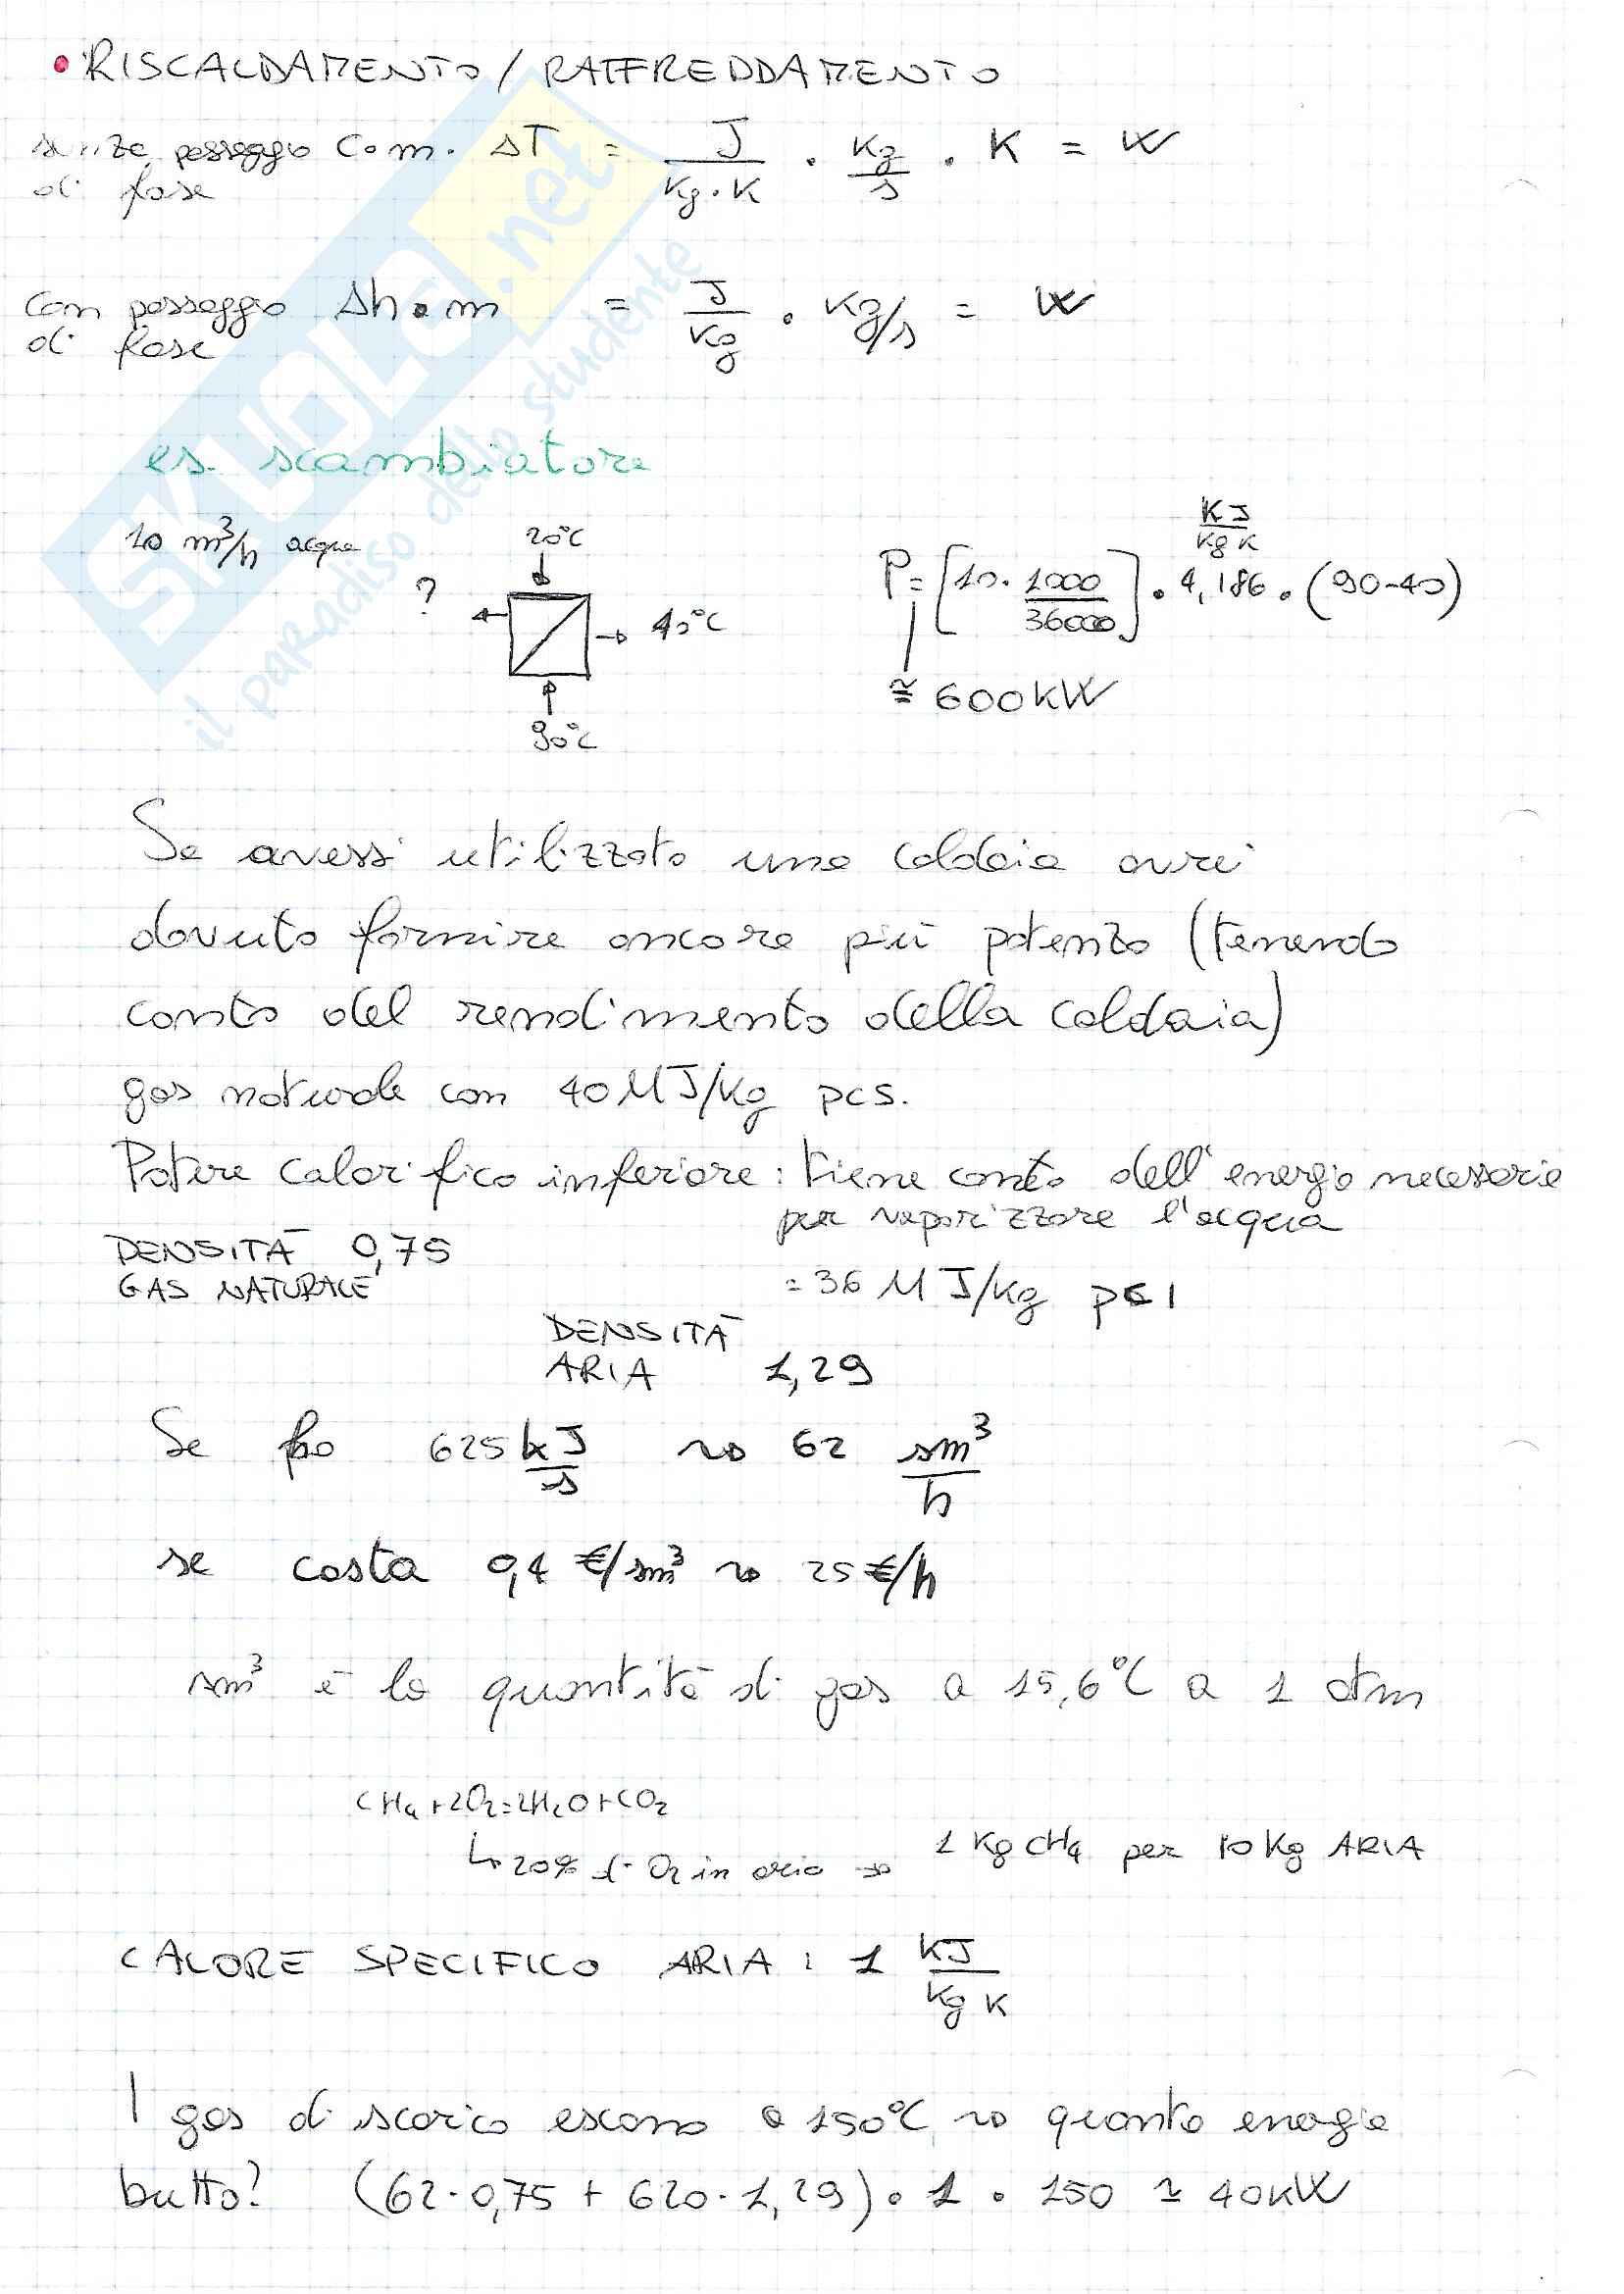 • RISCALDAMENTO / RAFFREDDAMENTO
senza passaggio di fase C • m . ΔT = J/(Kg•K) • Kg/s • K = W
con passaggio di fase Δh • m = J/Kg • Kg/s = W
es. scambiatore
10 m³/h acqua
20°C
?
40°C
90°C
P = [10 • 1000/36000] • 4,186 KJ/(Kg K) • (90-40)
≅ 600 kW
Se avessi utilizzato una caldaia avrei
dovuto fornire ancora più potenza (tenendo
conto del rendimento della caldaia)
gas naturale con 40 MJ/Kg pcs.
Potere calorifico inferiore : tiene conto dell'energia necessaria
per vaporizzare l'acqua
DENSITÀ 0,75
GAS NATURALE
= 36 MJ/Kg pci
DENSITÀ
ARIA 1,29
Se ho 625 kJ/s → 62 sm³/h
se costa 0,4 €/sm³ → 25 €/h
sm³ è la quantità di gas a 15,6°C a 1 atm
CH₄ + 2O₂ = 2H₂O + CO₂
↳ 20% di O₂ in aria → 1 Kg CH₄ per 10 Kg ARIA
CALORE SPECIFICO ARIA : 1 KJ/(Kg K)
I gas di scarico escono a 150°C → quanta energia
butto? (62 • 0,75 + 620 • 1,29) • 1 • 150 ≃ 40 kW
SKUOLA.net
il paradiso dello studente